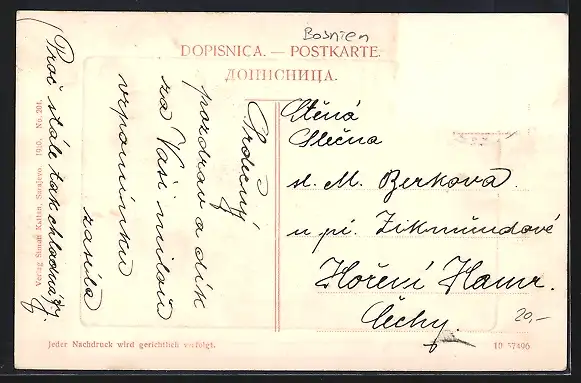 Bosnien
DOPISNICA. — POSTKARTE.
ДОПИСНИЦА.
Ctěná
Slečna
sl. M. Berkova.
u pí. Zikmundové
Hoření Hamr.
Čechy.
20,-
Srdečný
pozdrav a dík
za Vaši milou
vzpomínku
zasílá
Proč stále tak chladno
Verlag Simon Kattan, Sarajevo. 1910. No. 261.
Jeder Nachdruck wird gerichtlich verfolgt.
10 57496